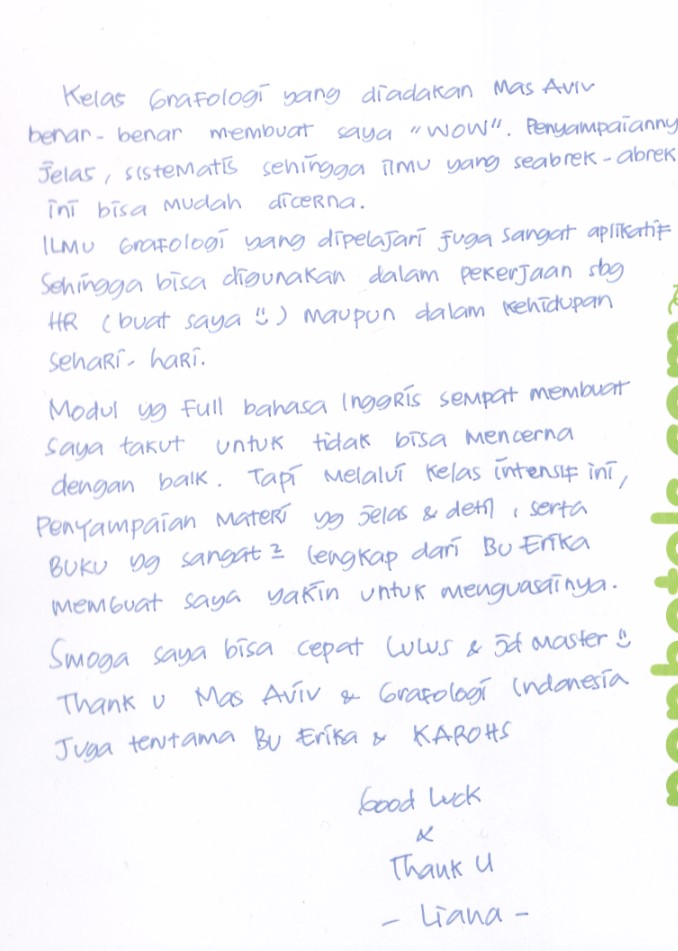 Kelas Grafologi yang diadakan Mas Aviv
benar-benar membuat saya "WOW". Penyampaianny
jelas, sistematis sehingga ilmu yang seabrek-abrek
ini bisa mudah dicerna.
Ilmu Grafologi yang dipelajari juga sangat aplikatif
sehingga bisa digunakan dalam pekerjaan sbg
HR (buat saya ☺) maupun dalam kehidupan
sehari-hari.
Modul yg full bahasa Inggris sempat membuat
saya takut untuk tidak bisa mencerna
dengan baik. Tapi melalui kelas intensif ini,
penyampaian materi yg jelas & detil, serta
buku yg sangat² lengkap dari Bu Erika
membuat saya yakin untuk menguasainya.
Smoga saya bisa cepat lulus & jd master ☺
Thank U Mas Aviv & Grafologi Indonesia
Juga terutama Bu Erika & KAROHS
Good Luck
&
Thank U
- Liana -